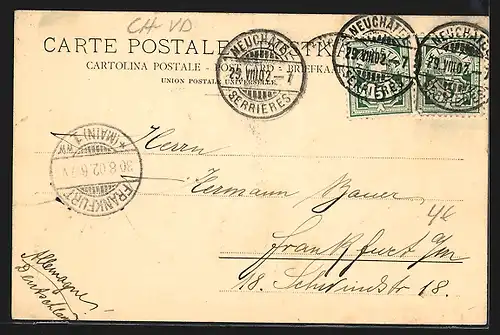 CH-VD
CARTE POSTALE
CARTOLINA POSTALE - POST CARD - BRIEFKA
UNION POSTALE UNIVERSELLE
NEUCHATEL
29.VIII.02.-7
SERRIÈRES
NEUCHATEL
29.VIII.02.-7
SERRIÈRES
5
FRANKFURT
30.8.02.
*(MAIN)1.
Herrn
Hermann Bauer
4€
Frankfurt a/m
18. Schwindstr 18.
Allemagne
Deutschland